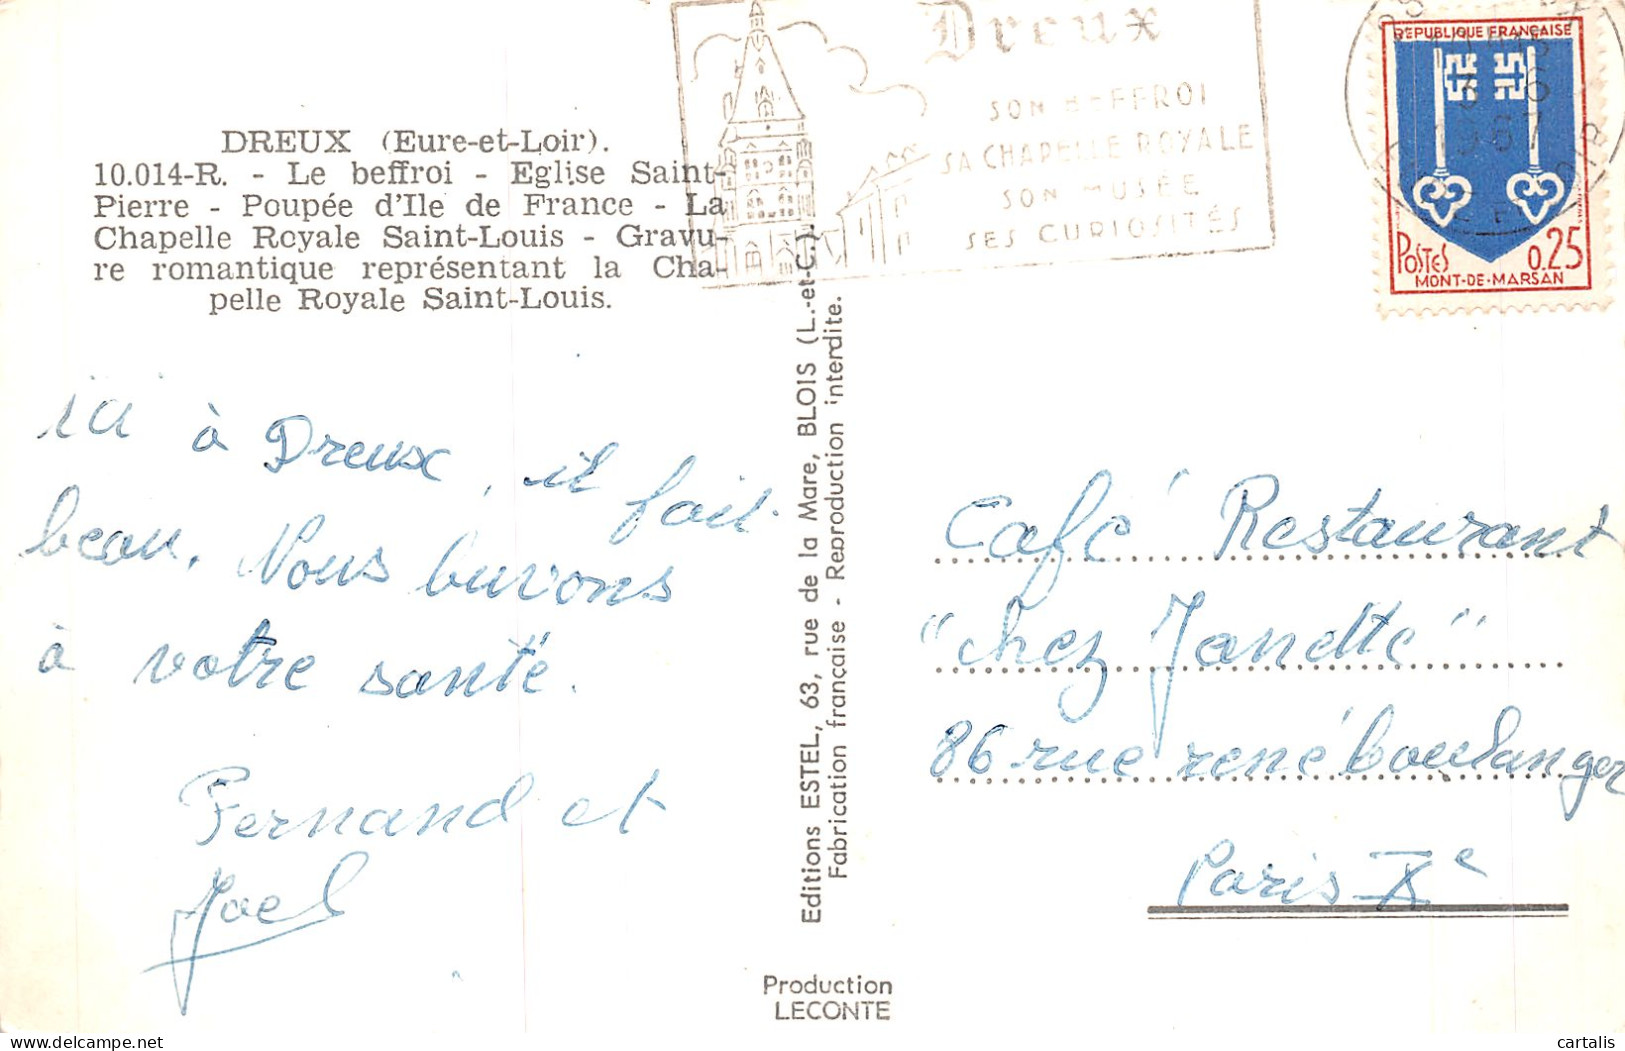 DREUX (Eure-et-Loir).
10.014-R. - Le beffroi - Eglise Saint-
Pierre - Poupée d'Ile de France - La
Chapelle Royale Saint-Louis - Gravu-
re romantique représentant la Cha-
pelle Royale Saint-Louis.
Dreux
SON BEFFROI
SA CHAPELLE ROYALE
SON MUSÉE
SES CURIOSITÉS
REPUBLIQUE FRANÇAISE
POSTES 0,25
MONT-DE-MARSAN
1967
ici à Dreux, il fait
beau. Nous buvons
à votre santé.
Fernand et
Joel
Editions ESTEL, 63, rue de la Mare, BLOIS (L.-et-C.)
Fabrication française - Reproduction interdite.
Café Restaurant
"chez Janette"
86 rue rené boulanger
Paris Xe
Production
LECONTE
cartalis